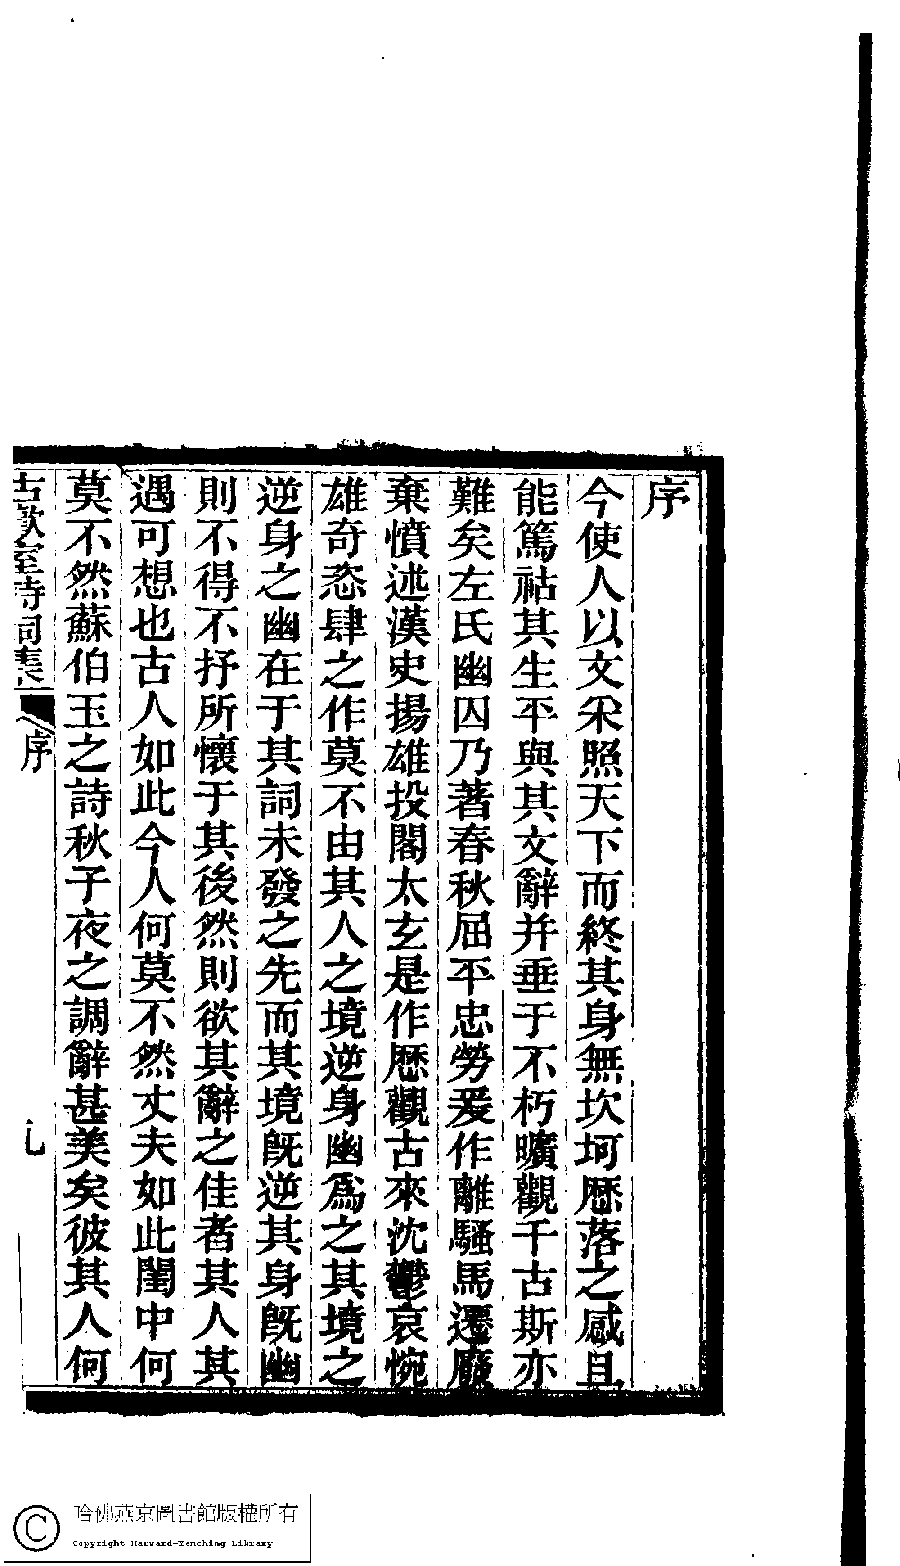 序
今使人以文采照天下而終其身無坎坷歷落之感且
能篤祜其生平與其文辭并垂于不朽曠觀千古斯亦
難矣左氏幽囚乃著春秋屈平忠勞爰作離騷馬遷廢
棄憤述漢史揚雄投閣太玄是作歷觀古來沈鬱哀惋
雄奇恣肆之作莫不由其人之境逆身幽爲之其境之
逆身之幽在于其詞未發之先而其境旣逆其身旣幽
則不得不抒所懷于其後然則欲其辭之佳者其人其
遇可想也古人如此今人何莫不然丈夫如此閨中何
莫不然蘇伯玉之詩秋子夜之調辭甚美矣彼其人何
古歡室詩詞集
序
哈佛燕京圖書館版權所有
Copyright Harvard-Yenching Library